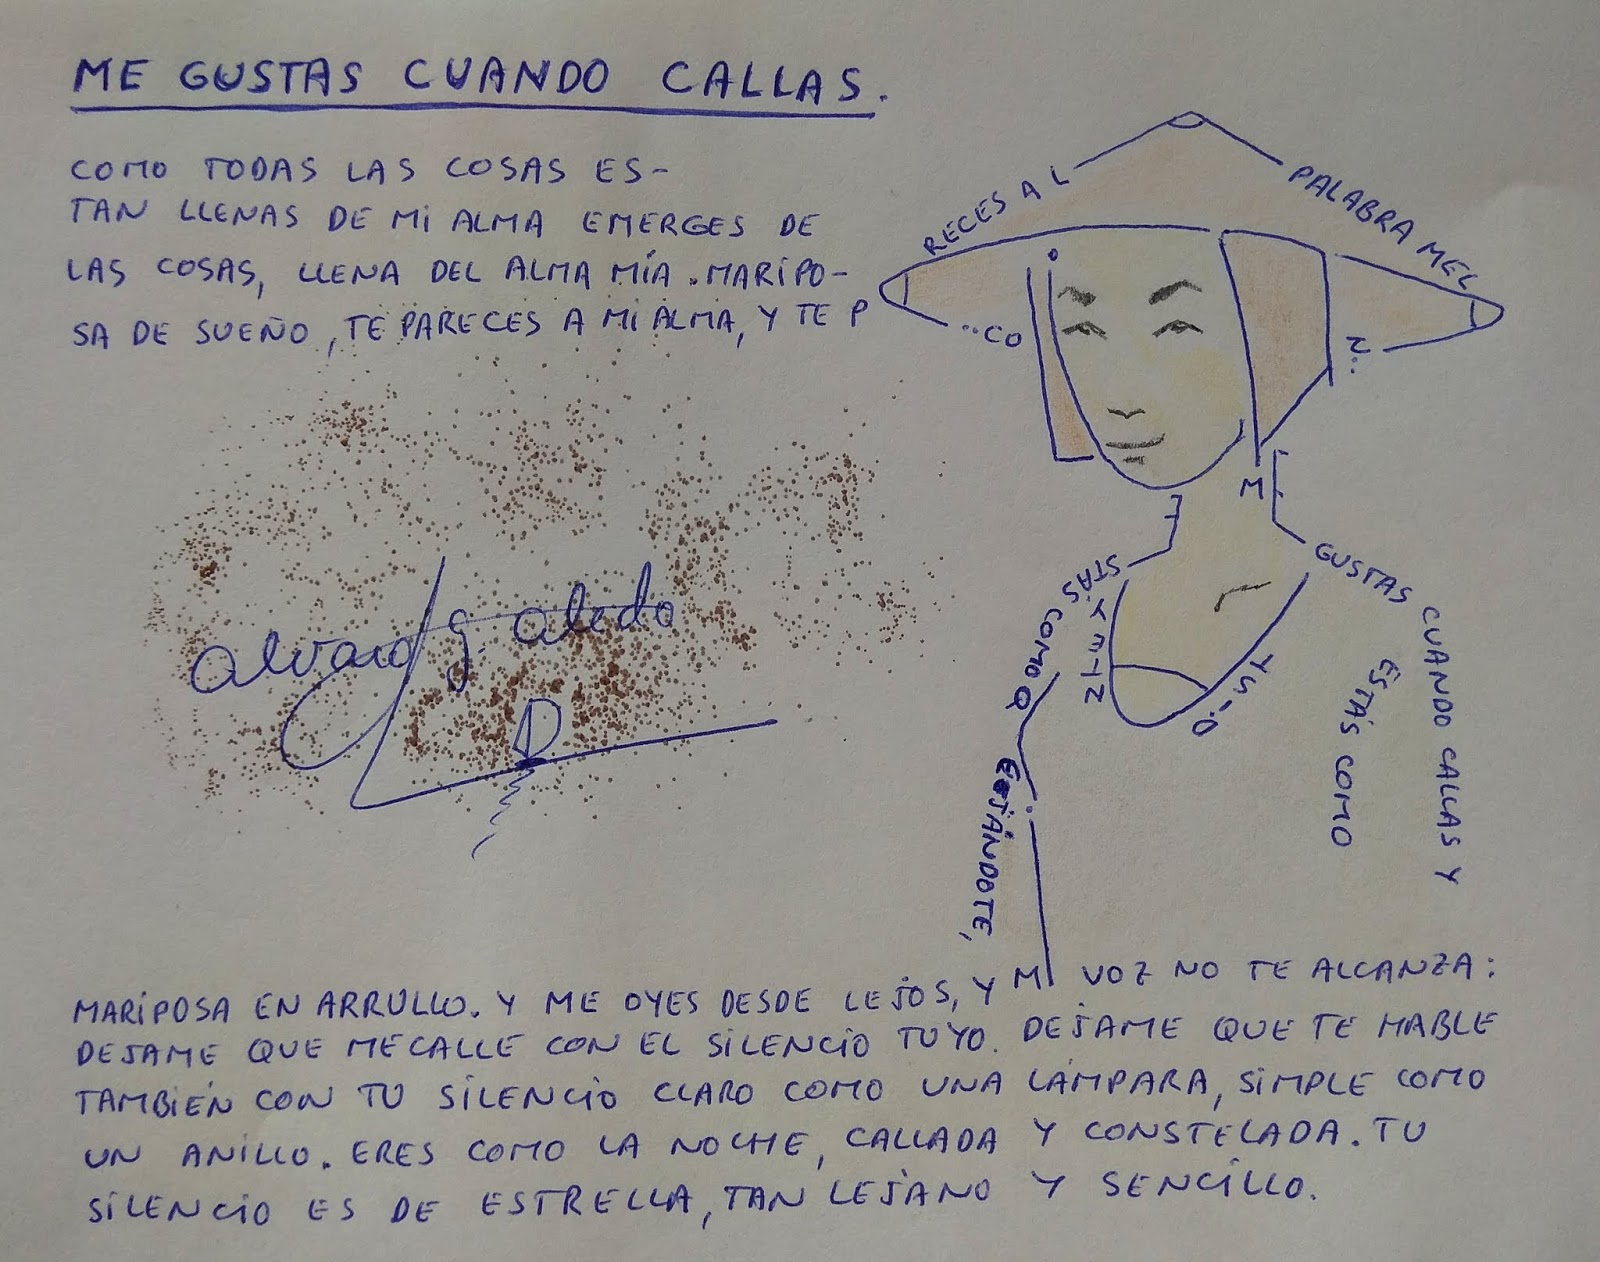 ME GUSTAS CUANDO CALLAS.
COMO TODAS LAS COSAS ES-
TAN LLENAS DE MI ALMA EMERGES DE
LAS COSAS, LLENA DEL ALMA MÍA. MARIPO-
SA DE SUEÑO, TE PARECES A MI ALMA, Y TE P
RECES A L
PALABRA MEL
..CO
N..
M
E
GUSTAS CUANDO CALLAS Y
ESTÁS COMO
E
STÁS COMO Q
EJÁNDOTE,
alvaro g. aledo
MARIPOSA EN ARRULLO. Y ME OYES DESDE LEJOS, Y MI VOZ NO TE ALCANZA:
DEJAME QUE ME CALLE CON EL SILENCIO TUYO. DEJAME QUE TE HABLE
TAMBIÉN CON TU SILENCIO CLARO COMO UNA LÁMPARA, SIMPLE COMO
UN ANILLO. ERES COMO LA NOCHE, CALLADA Y CONSTELADA. TU
SILENCIO ES DE ESTRELLA, TAN LEJANO Y SENCILLO.